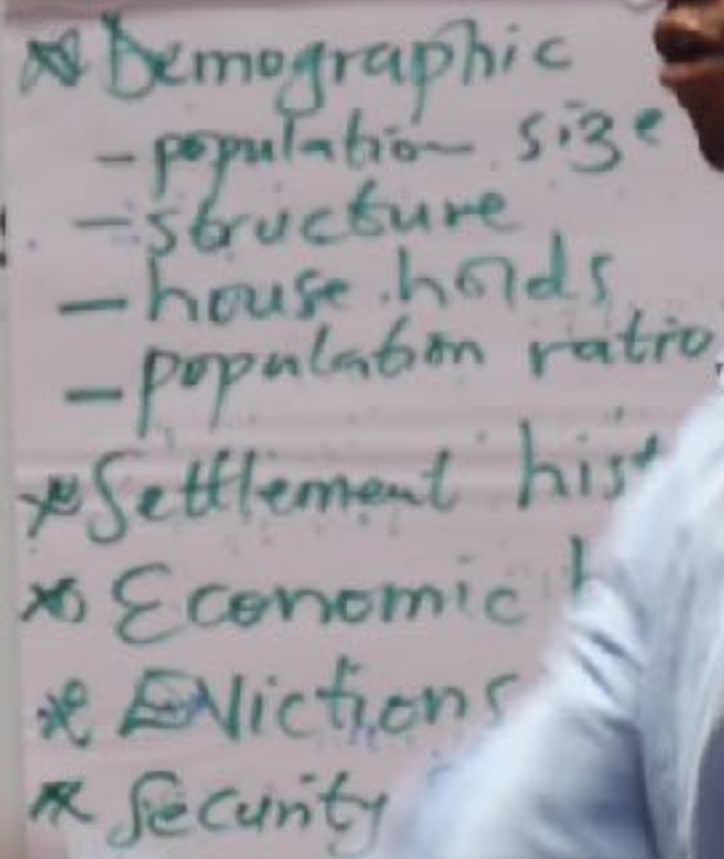 * Demographic
- population size
- structure
- house holds
- population ratio
* Settlement hist
* Economic
* Evictions
* Security